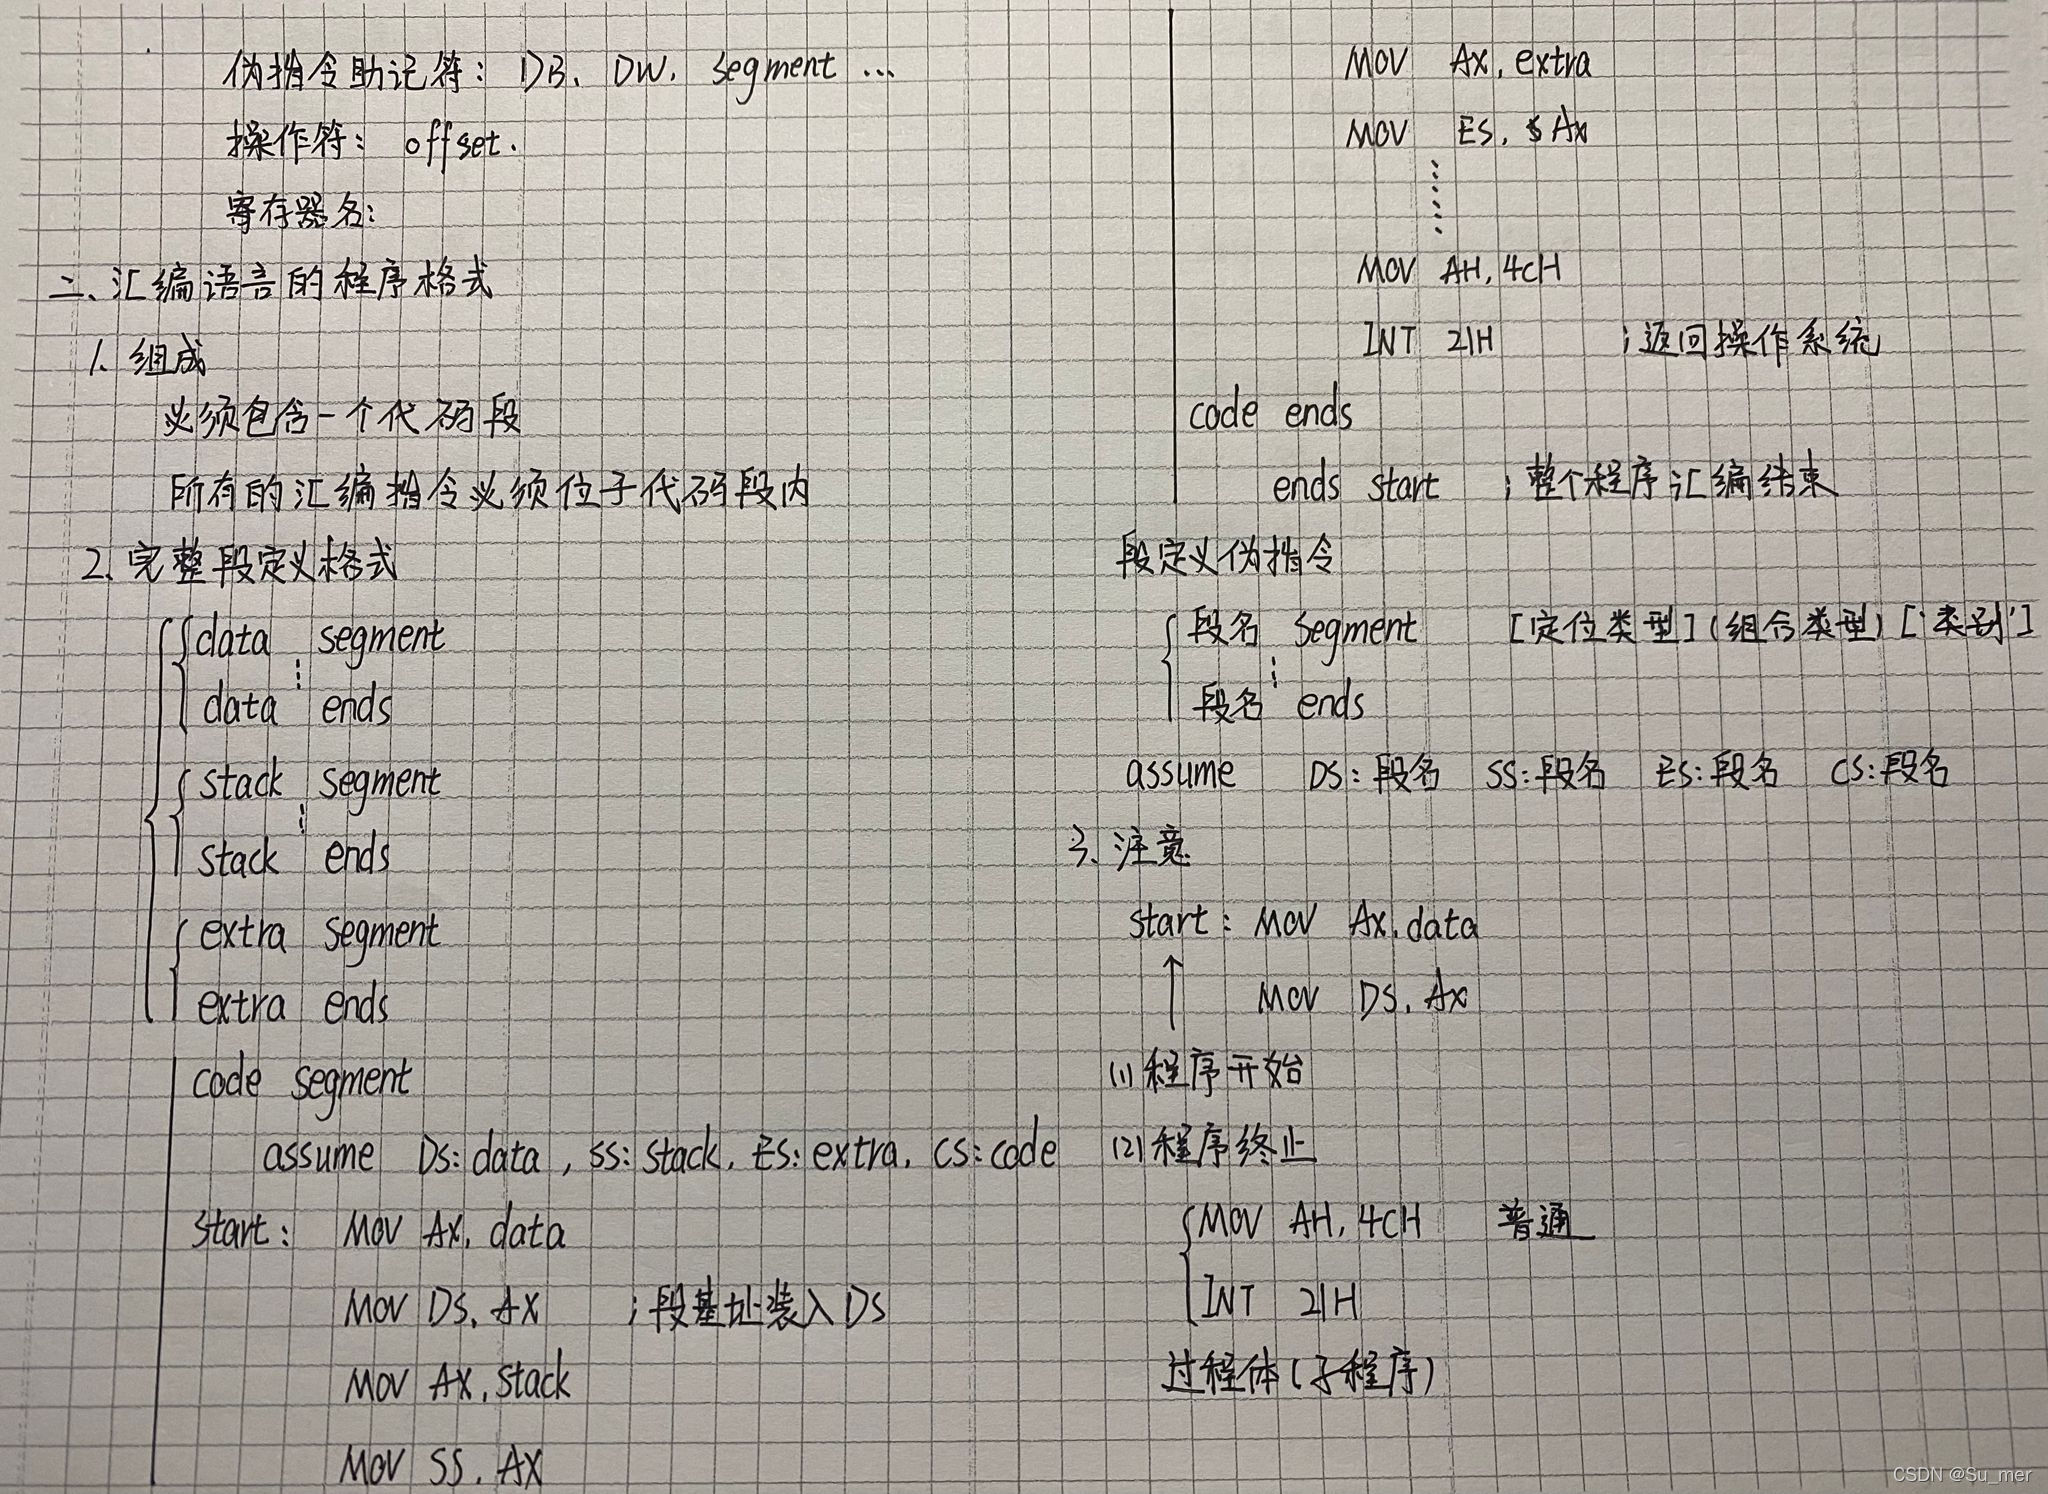 伪指令助记符：DB、DW、segment ...
操作符：offset.
寄存器名：
二、汇编语言的程序格式
1. 组成
必须包含一个代码段
所有的汇编指令必须位于代码段内
2、完整段定义格式
data segment
data ends
stack segment
stack ends
extra segment
extra ends
code segment
assume DS:data, SS:stack, ES:extra, CS:code
start: MOV AX, data
MOV DS, AX ;段基址装入DS
MOV AX, stack
MOV SS, AX
MOV AX, extra
MOV ES, AX
MOV AH, 4CH
INT 21H ;返回操作系统
code ends
ends start ;整个程序汇编结束
段定义伪指令
段名 segment [定位类型] (组合类型) ['类别']
段名 ends
assume DS:段名 SS:段名 ES:段名 CS:段名
3、注意
start: MOV AX, data
MOV DS, AX
(1)程序开始
(2)程序终止
MOV AH, 4CH 普通
INT 21H
过程体(子程序)
CSDN @Su_mer